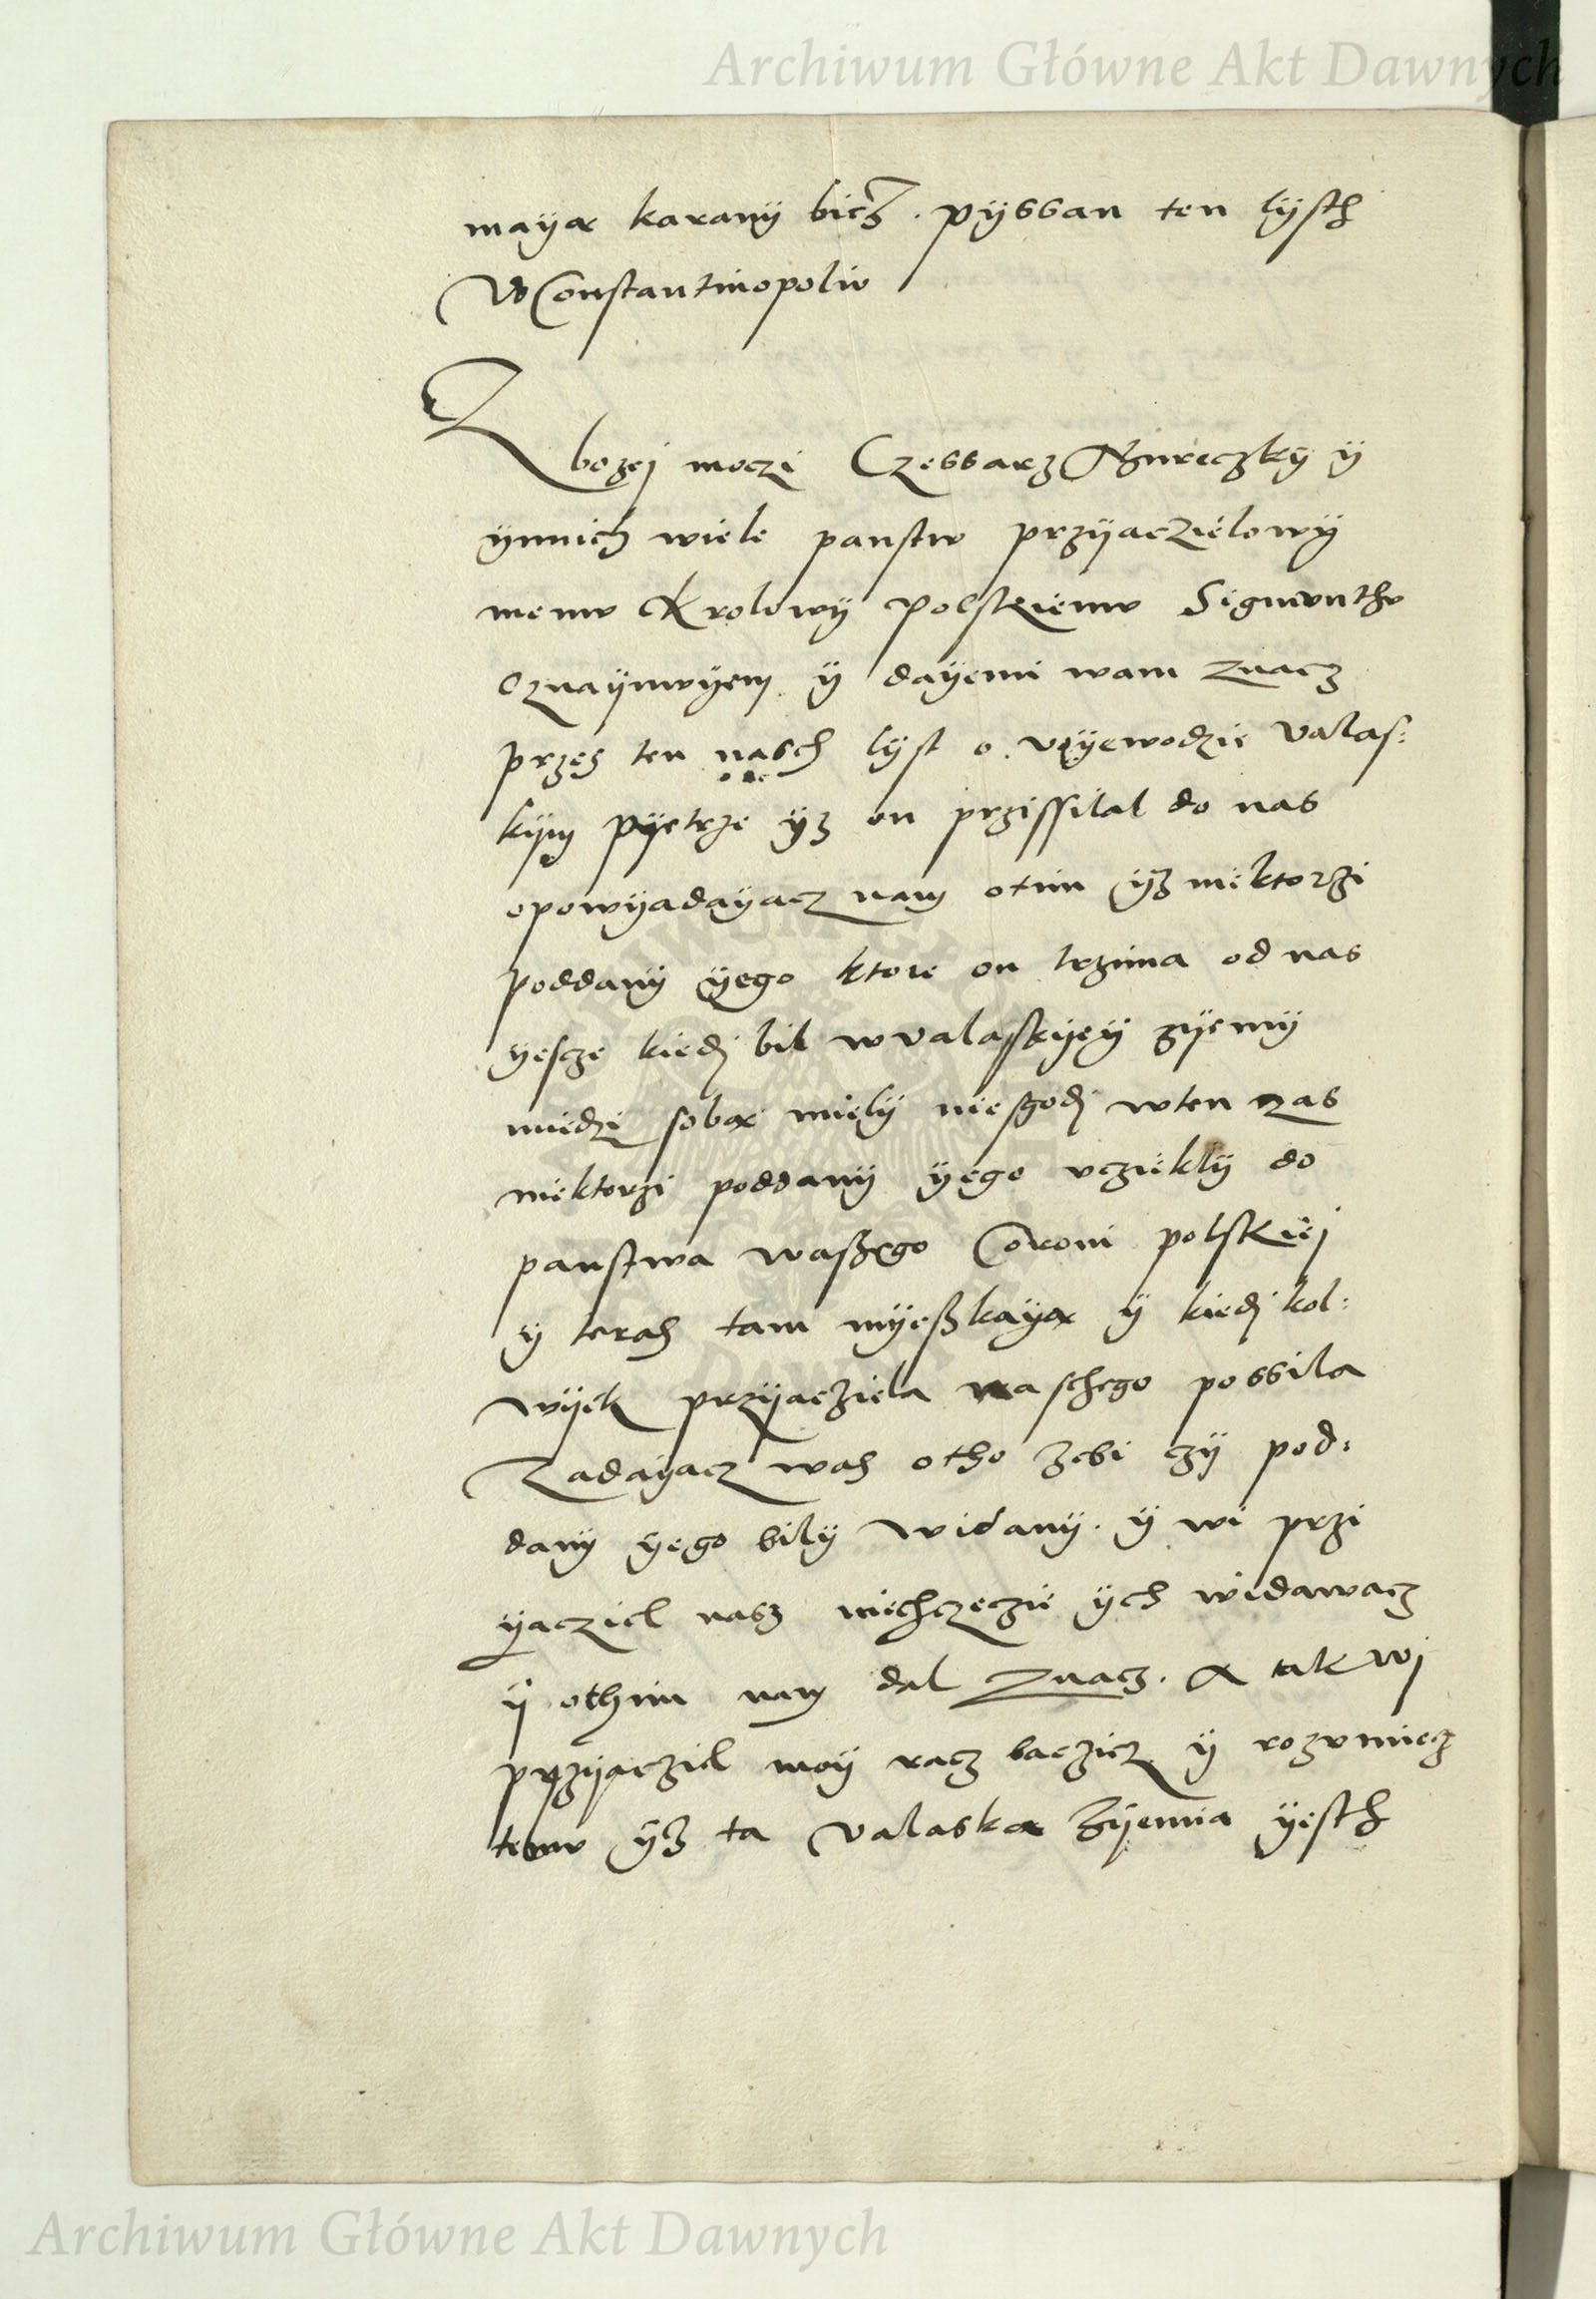 Archiwum Główne Akt Dawnych
mayą karany bicz. pyssan ten lysth
W Constantinopoliu
Z bozej moczi Czessarz Thureczky y
ynnich wiele panstw przyaczielowy
memu Krolowy polskiemu Sigmunthu
oznaymuyem y dayemi wam znacz
przes ten nasch lyst o voyewodzie valas:
kym pyetrze yz on przissilal do nas
opowyadayacz nam otim yz niektorzi
poddany yego ktore on trzima od nas
yescze kiedj bil w valasskyey zyemy
miedzi sobą miely niesgodj wten czas
niektorzi poddany yego vcziekly do
panstwa waszego Coroni polskiej
y teras tam myeszkayą y kiedj kol:
wyek przyacziela waschego possila
Zadayacz was otho zebi czy pod:
dany yego bily widany. y wi przi
yacziel nasz niechczeczie ych widawacz
y othim nam dal znacz. A tak wj
przyacziel moy racz baczicz y rozumiecz
temu yz ta valaska zyemia yesth
Archiwum Główne Akt Dawnych